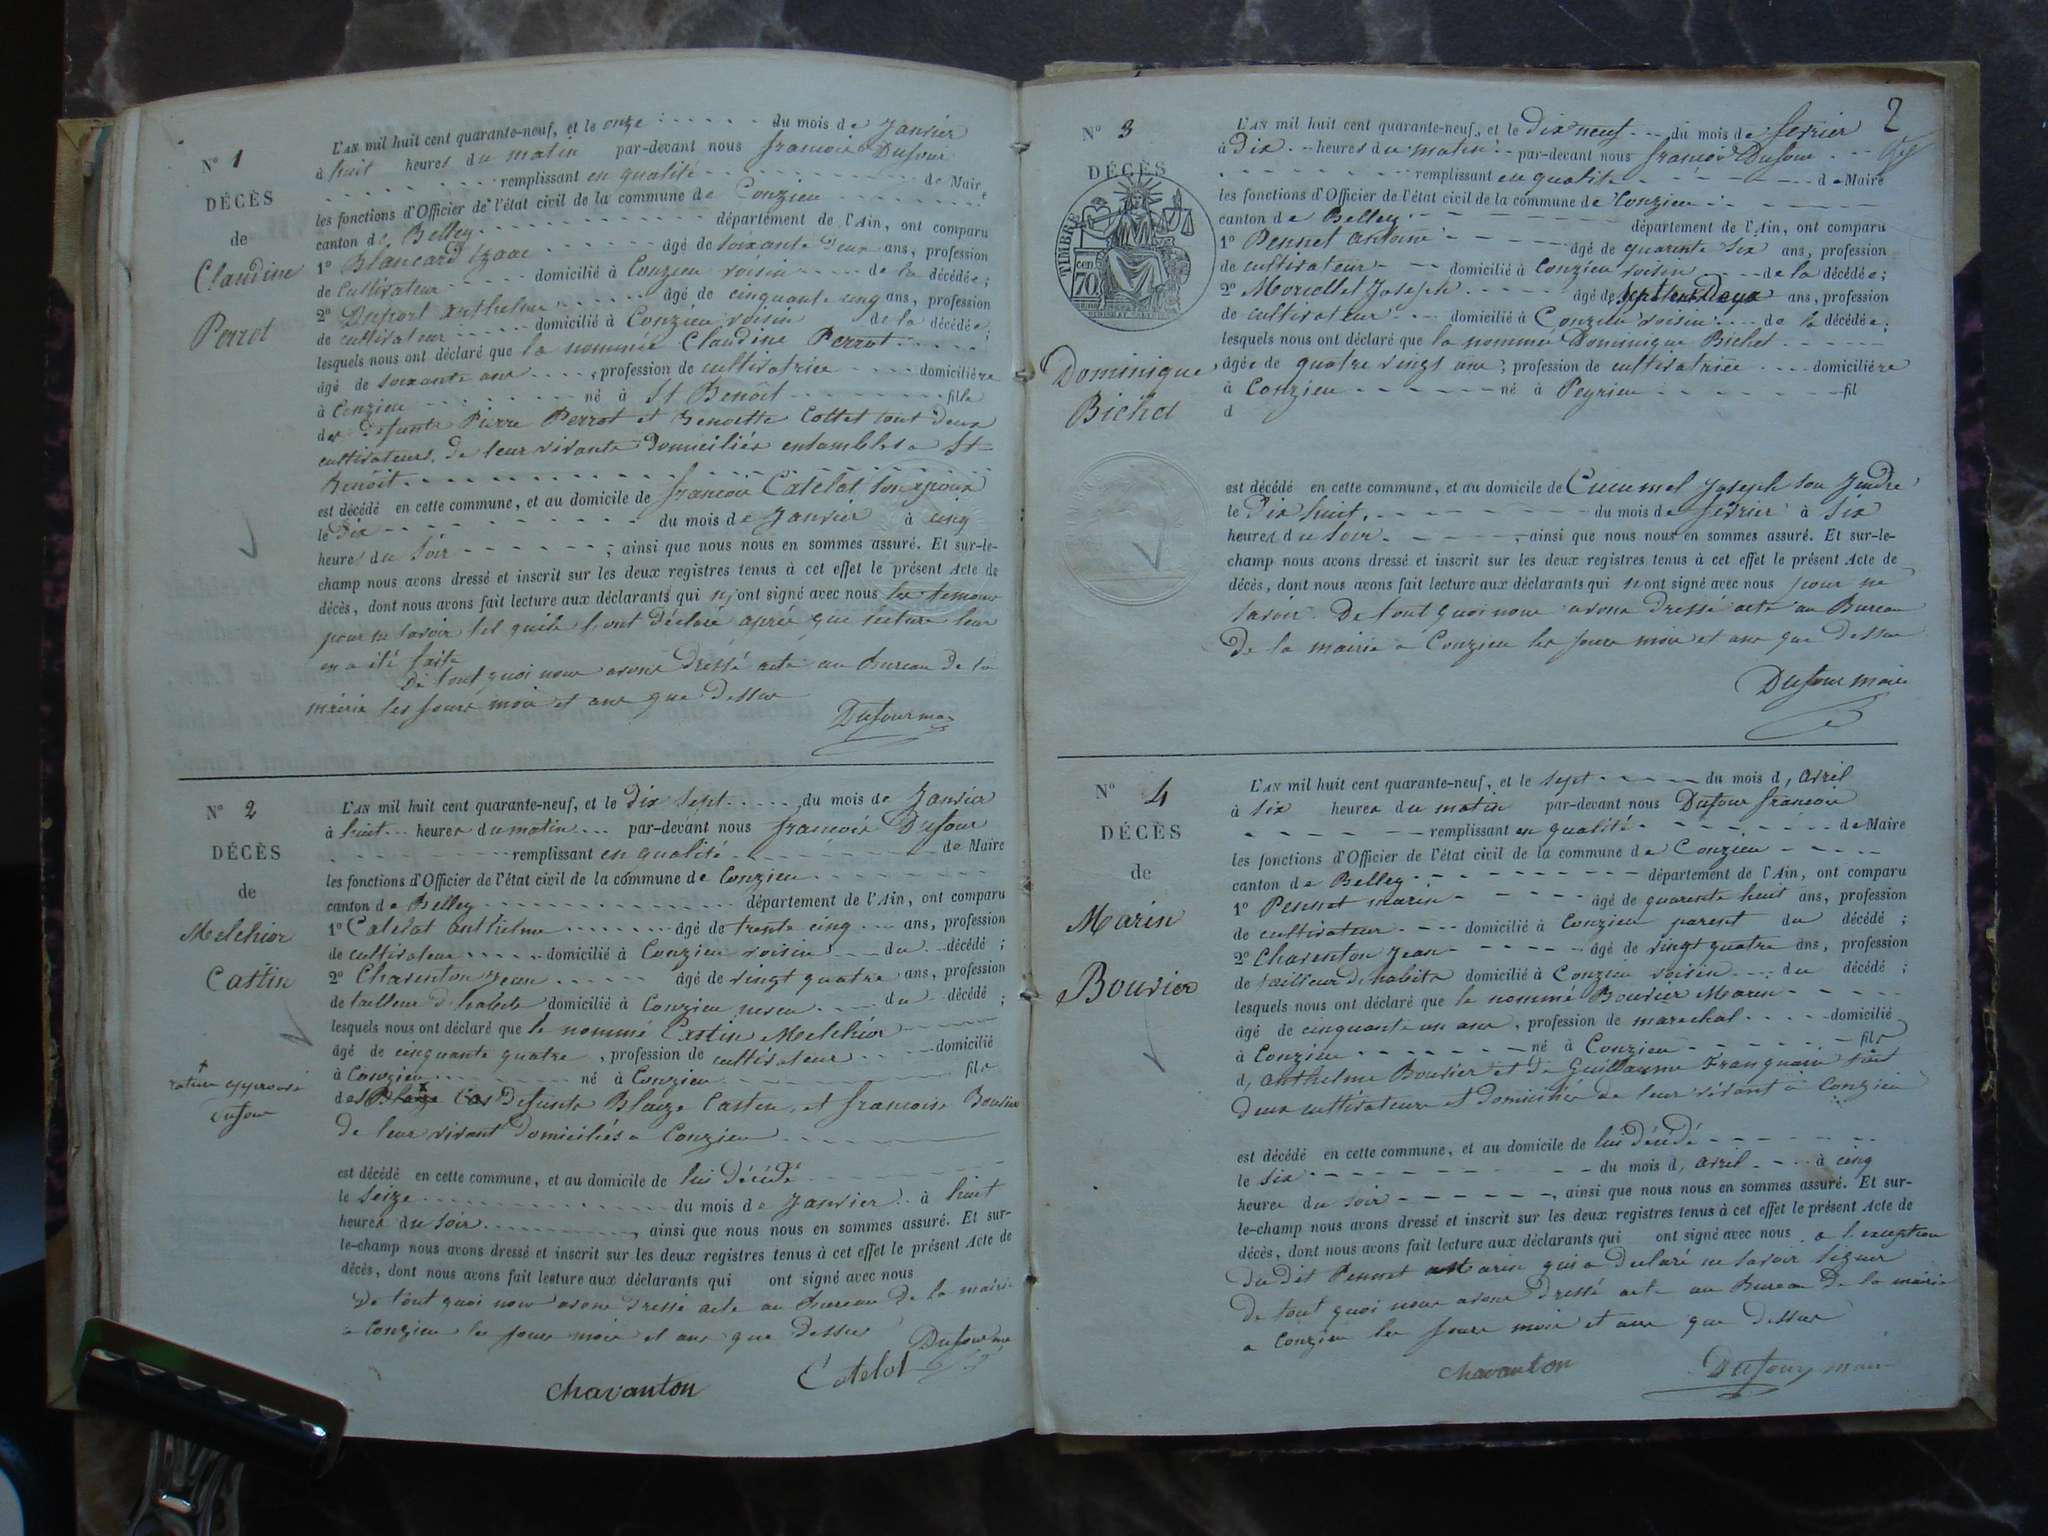 N° 1
DÉCÈS
de
Claudine
Perrot
L'AN mil huit cent quarante-neuf, et le onze du mois de Janvier
à huit heures du matin par-devant nous françois Dufour
remplissant en qualité de Maire
les fonctions d'Officier de l'état civil de la commune de Conzieu
canton de Belley département de l'Ain, ont comparu
1° Blancard Izaac âgé de soixante deux ans, profession
de Cultivateur domicilié à Conzieu voisin de la décédée;
2° Dufort anthelme âgé de cinquante cinq ans, profession
de cultivateur domicilié à Conzieu voisin de la décédée;
lesquels nous ont déclaré que la nommée Claudine Perrot
âgé de soixante ans, profession de cultivatrice domiciliére
à Conzieu né à St Benoît fille
des defunts Pierre Perrot et Benoitte Collet tout deux
cultivateurs, de leur vivants Domiciliés entambles a St-
Benoît
est décédé en cette commune, et au domicile de françois Catelat son epoux
le Dix du mois de Janvier à cinq
heures du soir; ainsi que nous nous en sommes assuré. Et sur-le-
champ nous avons dressé et inscrit sur les deux registres tenus à cet effet le présent Acte de
décès, dont nous avons fait lecture aux déclarants qui n'ont signé avec nous les temoins
pour ne savoir tel quils l'ont déclaré après que lecture leur
en a été faite
De tout quoi nous avons Dressé acte au Bureau De la
mairie les jours mois et ans que Dessus
Dufour
N° 2
DÉCÈS
de
Melchior
Castin
rature approuvé
Dufour
L'AN mil huit cent quarante-neuf, et le Dix sept du mois de Janvier
à huit heures du matin par-devant nous françois Dufour
remplissant en qualité de Maire
les fonctions d'Officier de l'état civil de la commune de Conzieu
canton de Belley département de l'Ain, ont comparu
1° Catelat anthelme âgé de trente cinq ans, profession
de cultivateur domicilié à Conzieu voisin du décédé;
2° Charenton Jean âgé de vingt quatre ans, profession
de tailleur d'habits domicilié à Conzieu neveu du décédé;
lesquels nous ont déclaré que le nommé Castin Melchior
âgé de cinquante quatre, profession de cultivateur domicilié
à Conzieu né à Conzieu fils
des Defunts Blaize Castin, et francoise Bouvier
De leur vivant Domiciliés a Conzieu
est décédé en cette commune, et au domicile de lui décédé
le seize du mois de Janvier à huit
heures du soir, ainsi que nous nous en sommes assuré. Et sur-
le-champ nous avons dressé et inscrit sur les deux registres tenus à cet effet le présent Acte de
décès, dont nous avons fait lesture aux déclarants qui ont signé avec nous
De tout quoi nous avons Dressé acte au Bureau De la mairie
a Conzieu les jours mois et ans que Dessus
Dufour
Chavanton Catelat
2
N° 3
DÉCÈS
TIMBRE
70 cen
Dominique
Bichet
L'AN mil huit cent quarante-neuf, et le Dix neuf du mois de fevrier
à Dix heures du matin par-devant nous françois Dufour
remplissant en qualité de Maire
les fonctions d'Officier de l'état civil de la commune de Conzieu
canton de Belley département de l'Ain, ont comparu
1° Pennet antoine âgé de quarente six ans, profession
de cultivateur domicilié à Conzieu voisin de la décédée;
2° Moriellet Joseph âgé de ans, profession
de cultivateur domicilié à Conzieu voisin de la décédée;
lesquels nous ont déclaré que la nommée Dominique Bichet
âgée de quatre vingt ans, profession de cultivatrice domiciliére
à Conzieu né à Peyrieu fil
d
est décédé en cette commune, et au domicile de Cucumel Joseph son Jendre
le Dix huit, du mois de fevrier à six
heures du soir, ainsi que nous nous en sommes assuré. Et sur-le-
champ nous avons dressé et inscrit sur les deux registres tenus à cet effet le présent Acte de
décès, dont nous avons fait lecture aux déclarants qui n'ont signé avec nous pour ne
savoir. De tout quoi nous avons Dressé acte au Bureau
De la mairie a Conzieu les jours mois et ans que Dessus
Dufour maire
N° 4
DÉCÈS
de
Marin
Bouvier
L'AN mil huit cent quarante-neuf, et le sept du mois d, avril
à six heures du matin par-devant nous Dufour francois
remplissant en qualité de Maire
les fonctions d'Officier de l'état civil de la commune de Conzieu
canton de Belley département de l'Ain, ont comparu
1° Pennet marin âgé de quarente huit ans, profession
de cultivateur domicilié à Conzieu parent du décédé;
2° Charenton Jean âgé de vingt quatre ans, profession
de tailleur d'habits domicilié à Conzieu voisin du décédé;
lesquels nous ont déclaré que le nommé Bouvier Marin
âgé de cinquante un ans, profession de marechal domicilié
à Conzieu né à Conzieu fils
d, anthelme Bouvier et de Guillaume Franquain tout
Deux cultivateurs et Domiciliés de leur vivant a Conzieu
est décédé en cette commune, et au domicile de lui décédé
le six du mois d, avril à cinq
heures du soir, ainsi que nous nous en sommes assuré. Et sur-
le-champ nous avons dressé et inscrit sur les deux registres tenus à cet effet le présent Acte de
décès, dont nous avons fait lecture aux déclarants qui ont signé avec nous a l'exception
du dit Pennet Marin qui a declaré ne savoir signer
De tout quoi nous avons Dressé acte au Bureau De la mairie
a Conzieu les jours mois et ans que dessus
Chavanton Dufour maire